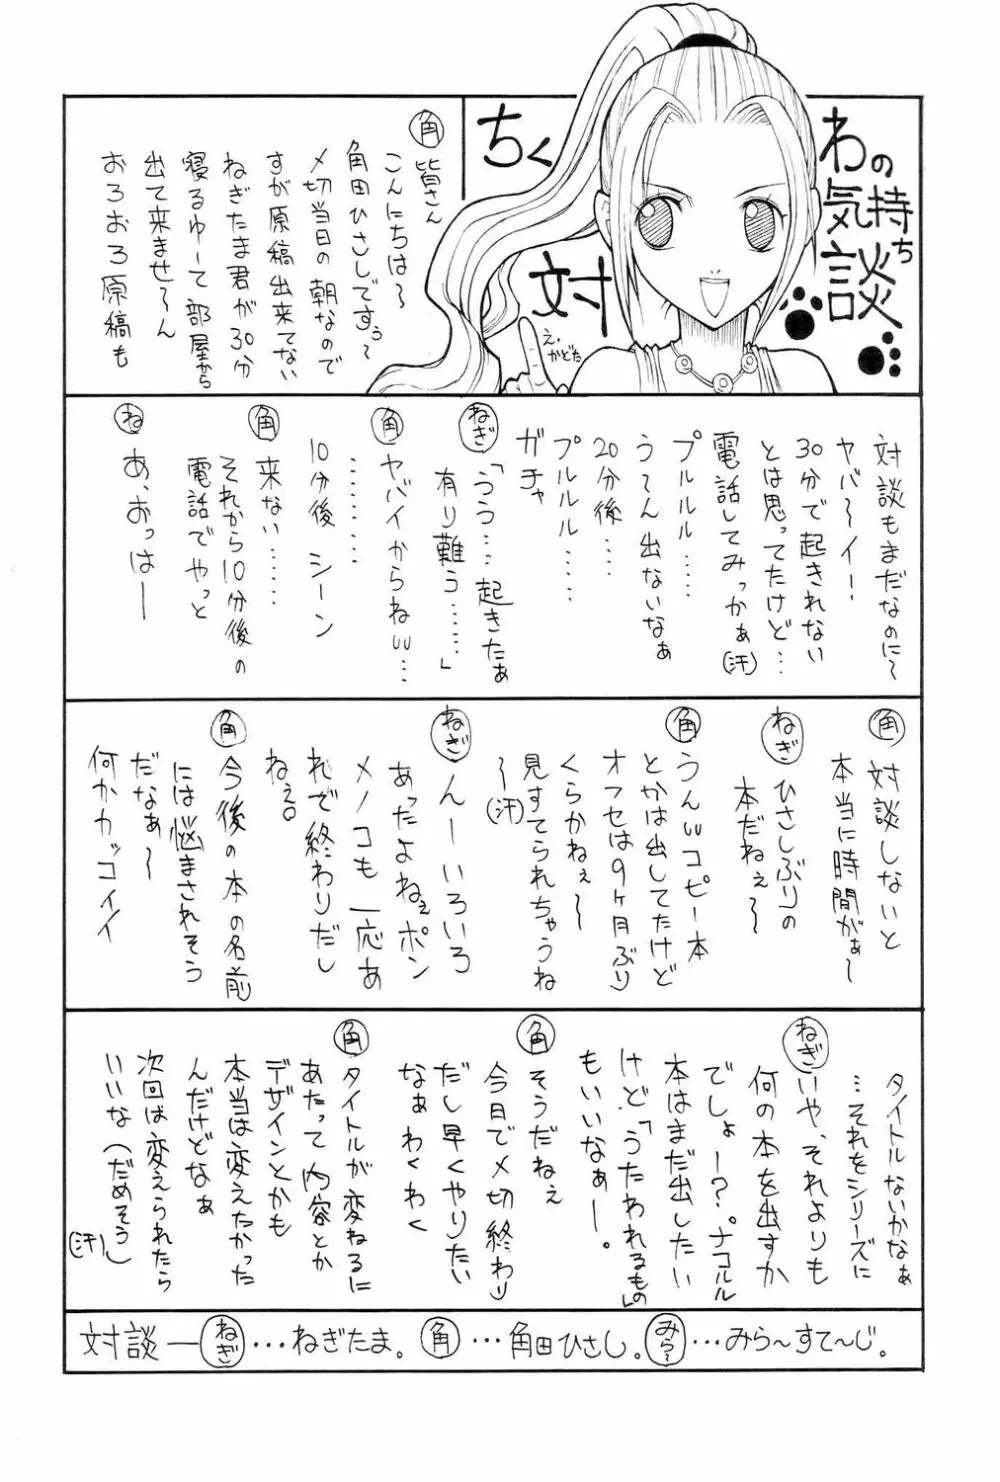 ちくわの気持ち
対談
え.かどた
角 皆さん
こんにちは〜
角田ひさしですぅ〜
〆切当日の朝なので
すが原稿出来てない
ねぎたま君が30分
寝るゆーて部屋から
出て来ませ〜ん
おろおろ原稿も
対談もまだなのに〜
ヤバ〜イー!
30分で起きれない
とは思ってたけど…
電話してみっかぁ(汗)
プルルルル……
う〜ん出ないなぁ
20分後……
プルルルル……
ガチャ
ねぎ「うう…起きたぁ
有り難う……」
角 ヤバイからねw…
………
10分後 シーン
………
角 来ない……
それから10分後の
電話でやっと
ね あ、おっはー
角 対談しないと
本当に時間がぁ〜
ねぎ ひさしぶりの
本だねぇ〜
角 うんwコピー本
とかは出してたけど
オフセは9ヶ月ぶり
くらかねぇ〜
見すてられちゃうね
〜(汗)
ねぎ んーいろいろ
あったよねぇポン
メノコも一応あ
れで終わりだし
ねぇ。
角 今後の本の名前
には悩まされそう
だなぁ〜
何かカッコイイ
タイトルないかなぁ
…それをシリーズに
ねぎ いや、それよりも
何の本を出すか
でしょー?。ナコルル
本はまだ出したい
けど「うたわれるもの」
もいいなぁー。
角 そうだねぇ
今日で〆切終わり
だし早くやりたい
なぁ わくわく
角 タイトルが変ねるに
あたって内容とか
デザインとかも
本当は変えたかった
んだけどなぁ
次回は変えられたら
いいな(だめそう)
(汗)
対談―ねぎ…ねぎたま。角…角田ひさし。みら〜…みら〜すて〜じ。